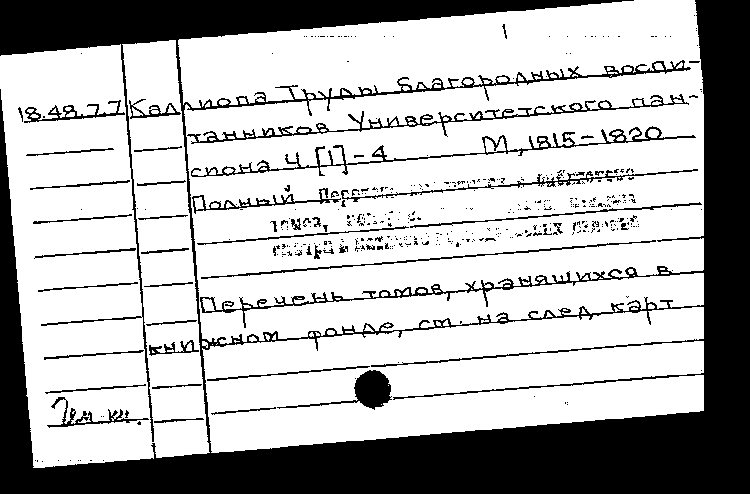 1
18.48.7.7 Каллиопа Труды благородных воспи-
танников Университетского пан-
сиона Ч. [1]-4 М., 1815-1820
Полный Перечень в библиотеке
томов,
смотри в
Перечень томов, хранящихся в
книжном фонде, см. на след. карт